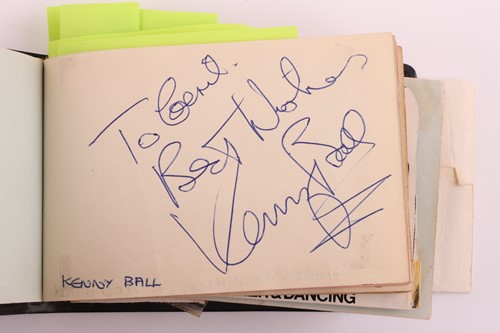 To Carol.
Best Wishes
Kenny Ball
KENNY BALL
& DANCING